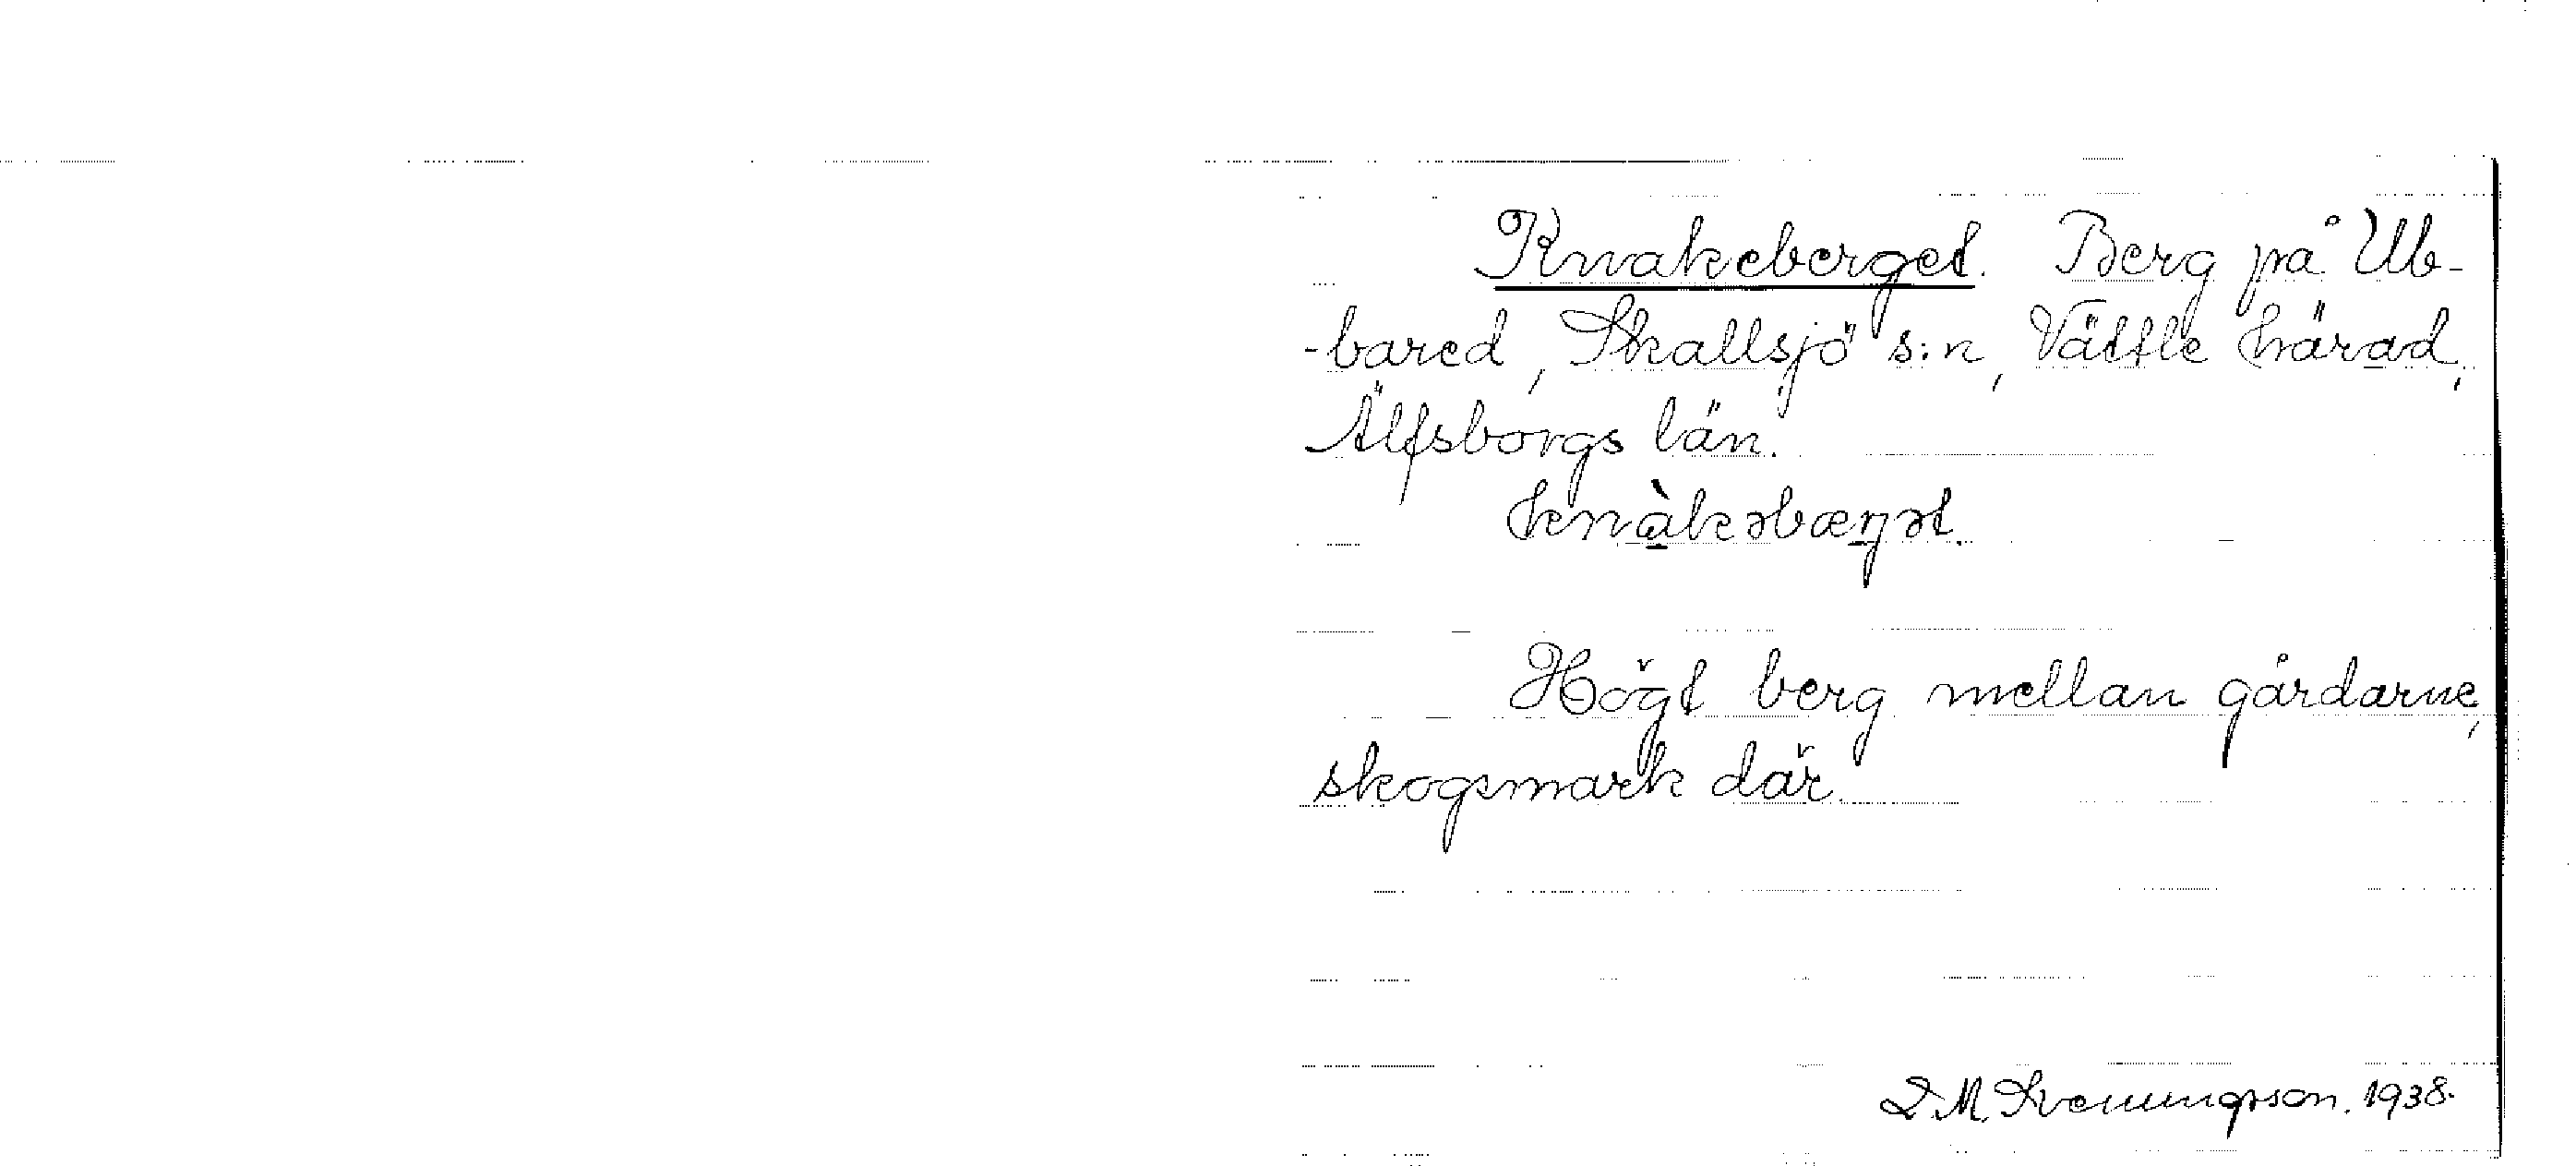 Knakeberget. Berg på Ub-
-bared, Skallsjö s:n, Vättle härad,
Älfsborgs län.
knàkəbæŋət.
Högt berg mellan gårdarne,
skogsmark där.
D.M. Svenningsson. 1938.